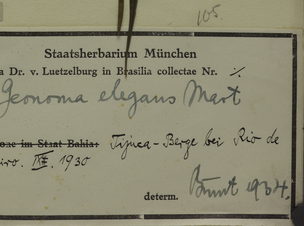 105.
Staatsherbarium München
a Dr. v. Luetzelburg in Brasilia collectae Nr. ./.
Geonoma elegans Mart
im Staat Bahia: Tijuca-Berge bei Rio de
iro. 1930
Burret 1934.
determ.